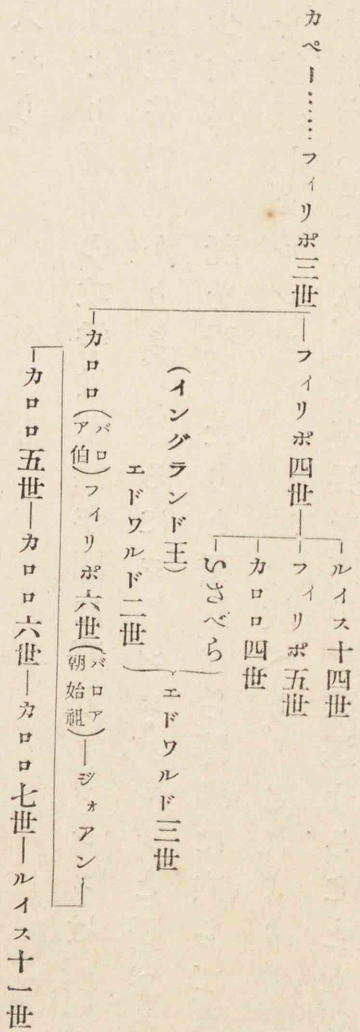 カペー……フィリポ三世―フィリポ四世―
ルイス十四世
フィリポ五世
カロロ四世
いさべら
(イングランド王)
エドワルド二世
エドワルド三世
カロロ(バロア伯)フィリポ六世(バロア朝始祖)―ジォアン
カロロ五世―カロロ六世―カロロ七世―ルイス十一世